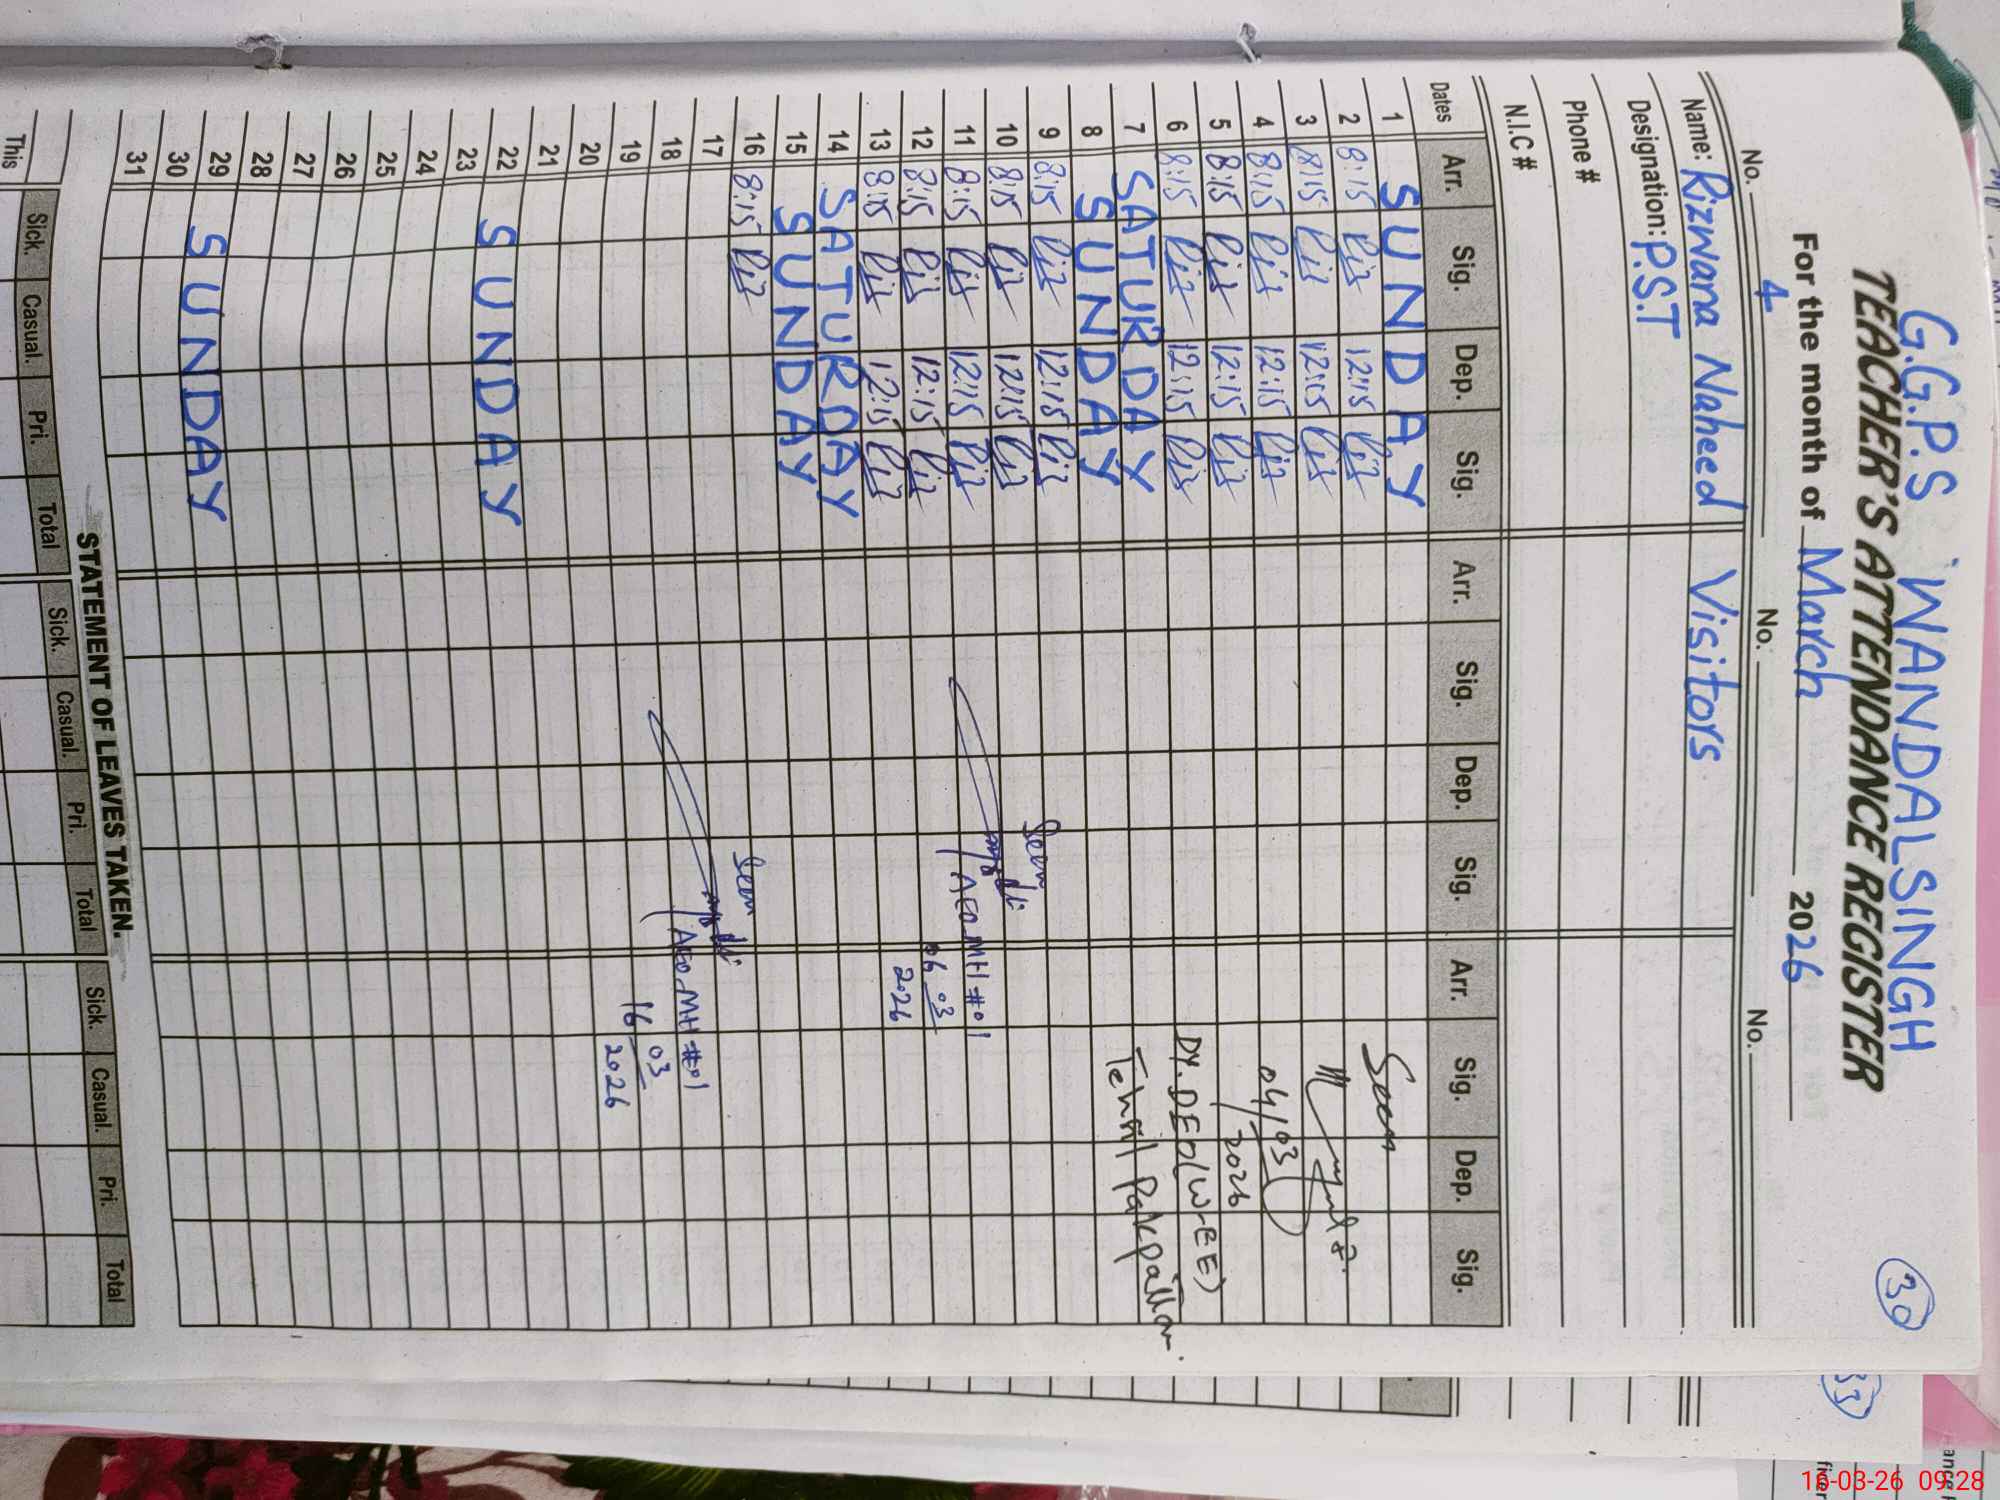 G.G.P.S WANDALSINGH
TEACHER'S ATTENDANCE REGISTER
For the month of March 2026
30
No. 4 No. No.
Name: Rizwana Naheed Visitors
Designation: P.S.T
Phone #
N.I.C #
Dates Arr. Sig. Dep. Sig. Arr. Sig. Dep. Sig. Arr. Sig. Dep. Sig.
1 SUNDAY Seen
2 8:15 Riz 12:15 Riz
3 8:15 Riz 12:15 Riz
4 8:15 Riz 12:15 Riz 04/03/2026
5 8:15 Riz 12:15 Riz
6 8:15 Riz 12:15 Riz DY. DEO(W-EE)
7 SATURDAY Tehsil Pakpattan.
8 SUNDAY
9 8:15 Riz 12:15 Riz Seen
10 8:15 Riz 12:15 Riz
11 8:15 Riz 12:15 Riz AEO MH #01
12 8:15 Riz 12:15 Riz 06 03
13 8:15 Riz 12:15 Riz 2026
14 SATURDAY
15 SUNDAY
16 8:15 Riz Seen
17
18 AEO MH #01
19 16 03
20 2026
21
22 SUNDAY
23
24
25
26
27
28
29 SUNDAY
30
31
STATEMENT OF LEAVES TAKEN.
Sick. Casual. Pri. Total Sick. Casual. Pri. Total Sick. Casual. Pri. Total
This
16-03-26 09:28